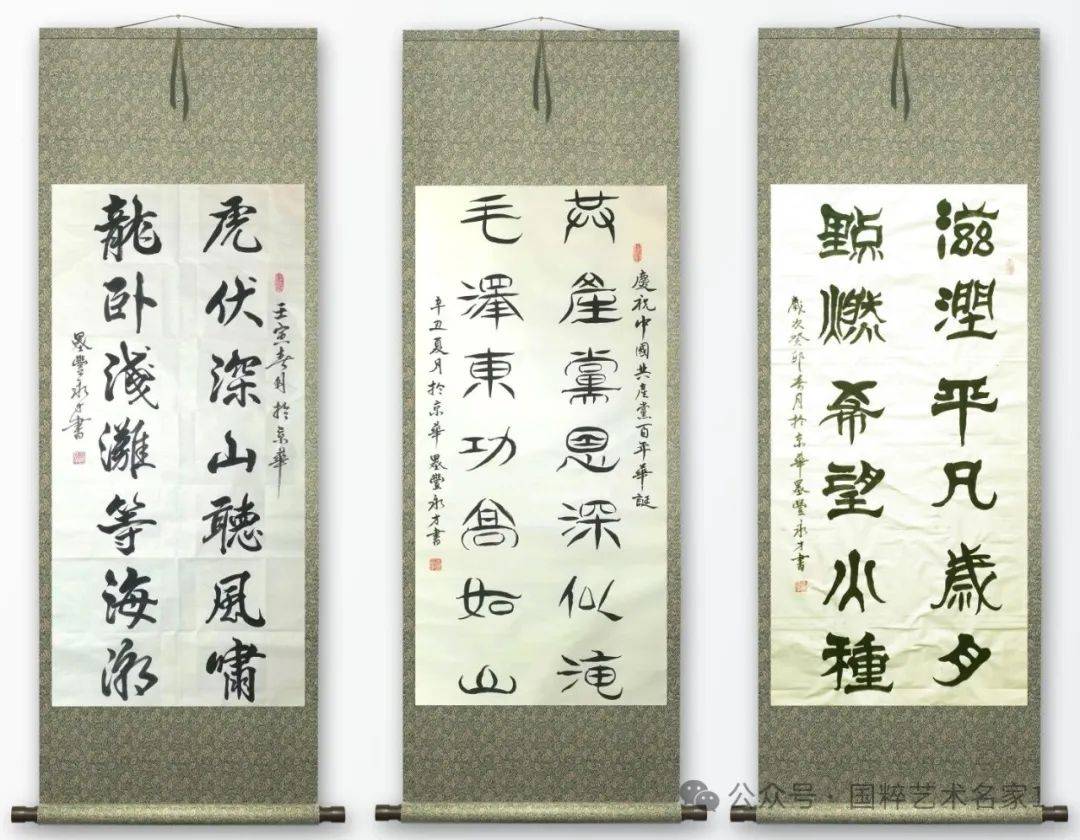 壬寅春月於京華
虎伏深山聽風嘯
龍卧淺灘等海潮
墨豐永才書
慶祝中國共產黨百年華誕
共產黨恩深似海
毛澤東功高如山
辛丑夏月於京華墨豐永才書
滋潤平凡歲月
點燃希望火種
歲次癸卯春月於京華墨豐永才書
公众号·国粹艺术名家